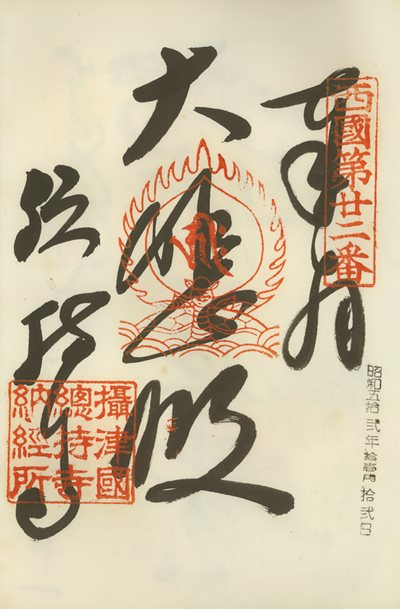 西國第廿二番
奉拝
昭和五拾弐年拾壹月拾弐日
大悲殿
総持寺
攝津國
總持寺
納經所